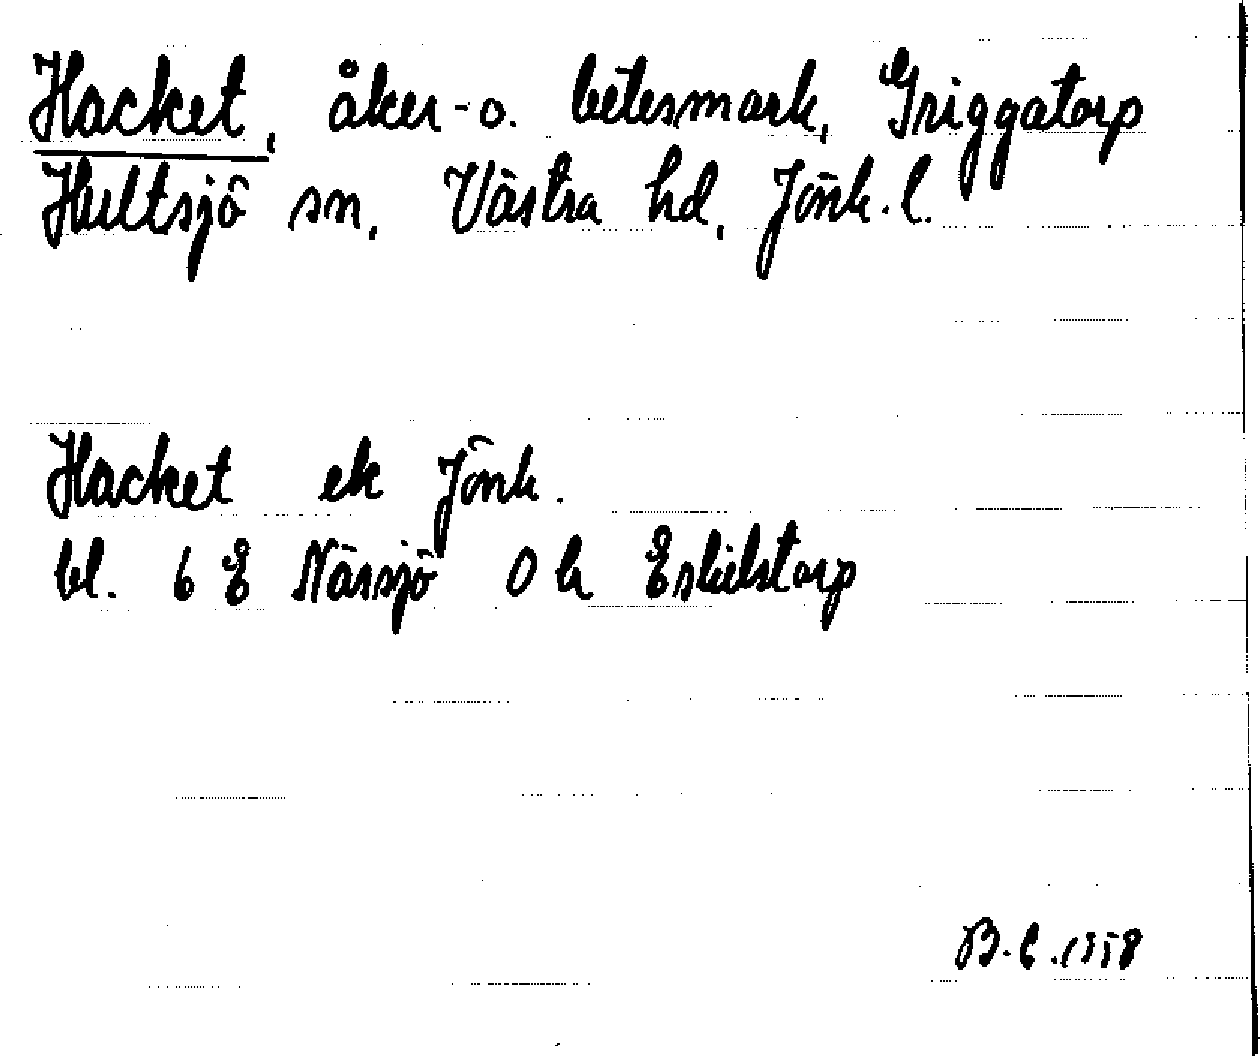 Hacket, åker- o. betesmark, Griggatorp
Hultsjö sn, Västra hd, Jönk. l.
Hacket ek Jönk.
bl. 6 E Nässjö 0 h Eskilstorp
B. C. 1958